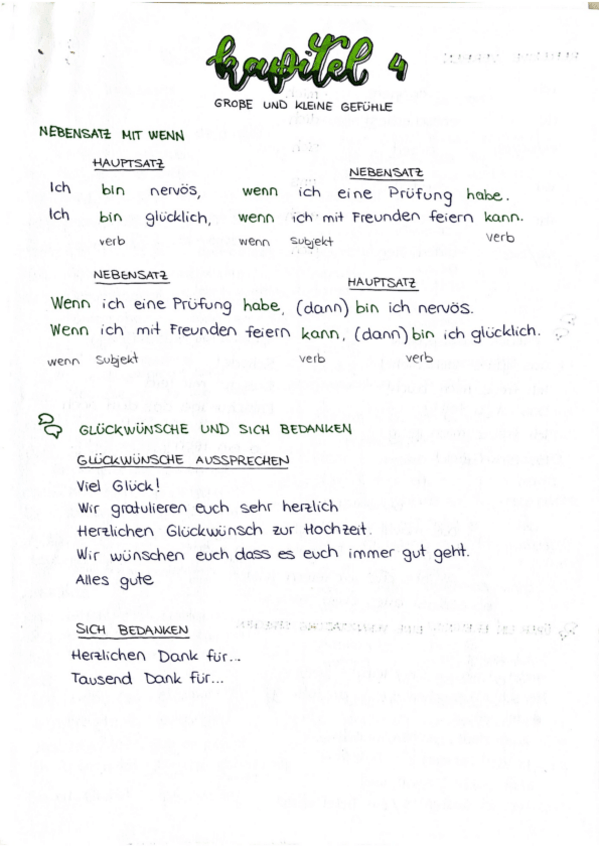 Kapitel 4
GROßE UND KLEINE GEFÜHLE
NEBENSATZ MIT WENN
HAUPTSATZ NEBENSATZ
Ich bin nervös, wenn ich eine Prüfung habe.
Ich bin glücklich, wenn ich mit Freunden feiern kann.
verb wenn Subjekt verb
NEBENSATZ HAUPTSATZ
Wenn ich eine Prüfung habe, (dann) bin ich nervös.
Wenn ich mit Freunden feiern kann, (dann) bin ich glücklich.
wenn Subjekt verb verb
GLÜCKWÜNSCHE UND SICH BEDANKEN
GLÜCKWÜNSCHE AUSSPRECHEN
Viel Glück!
Wir gratulieren euch sehr herzlich
Herzlichen Glückwünsch zur Hochzeit.
Wir wünschen euch dass es euch immer gut geht.
Alles gute
SICH BEDANKEN
Herzlichen Dank für...
Tausend Dank für...